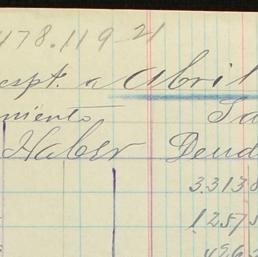 478.119-21
cspt. a Abril
miento Sa
Haber Deud
3.3138
1.2575
496